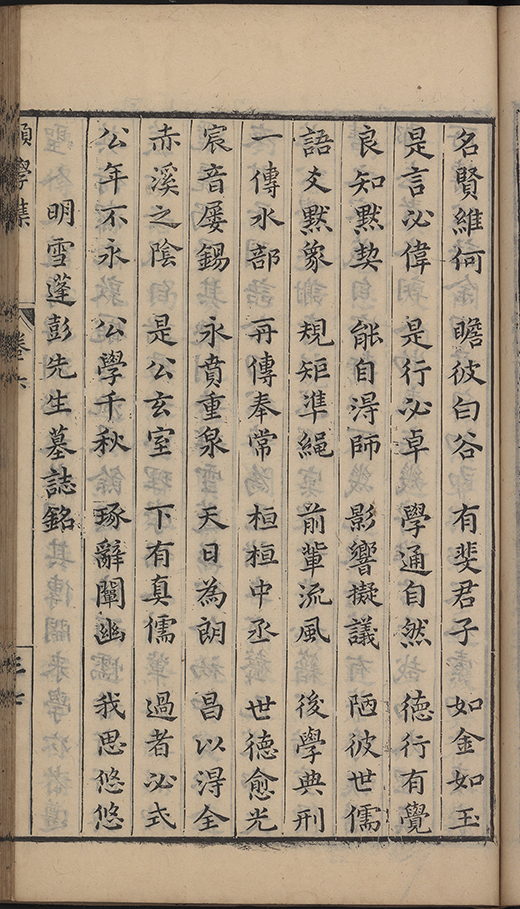 名賢維何　瞻彼白谷　有斐君子　如金如玉
是言必偉　是行必卓　學通自然　德行有覺
良知默契　能自得師　影響擬議　陋彼世儒
語文默象　規矩準繩　前輩流風　後學典刑
一傳水部　再傳奉常　桓桓中丞　世德愈光
宸音屢錫　永賁重泉　天日為朗　昌以得全
赤溪之陰　是公玄室　下有真儒　過者必式
公年不永　公學千秋　琢辭闡幽　我思悠悠
明雪蓬彭先生墓誌銘
學集　卷六